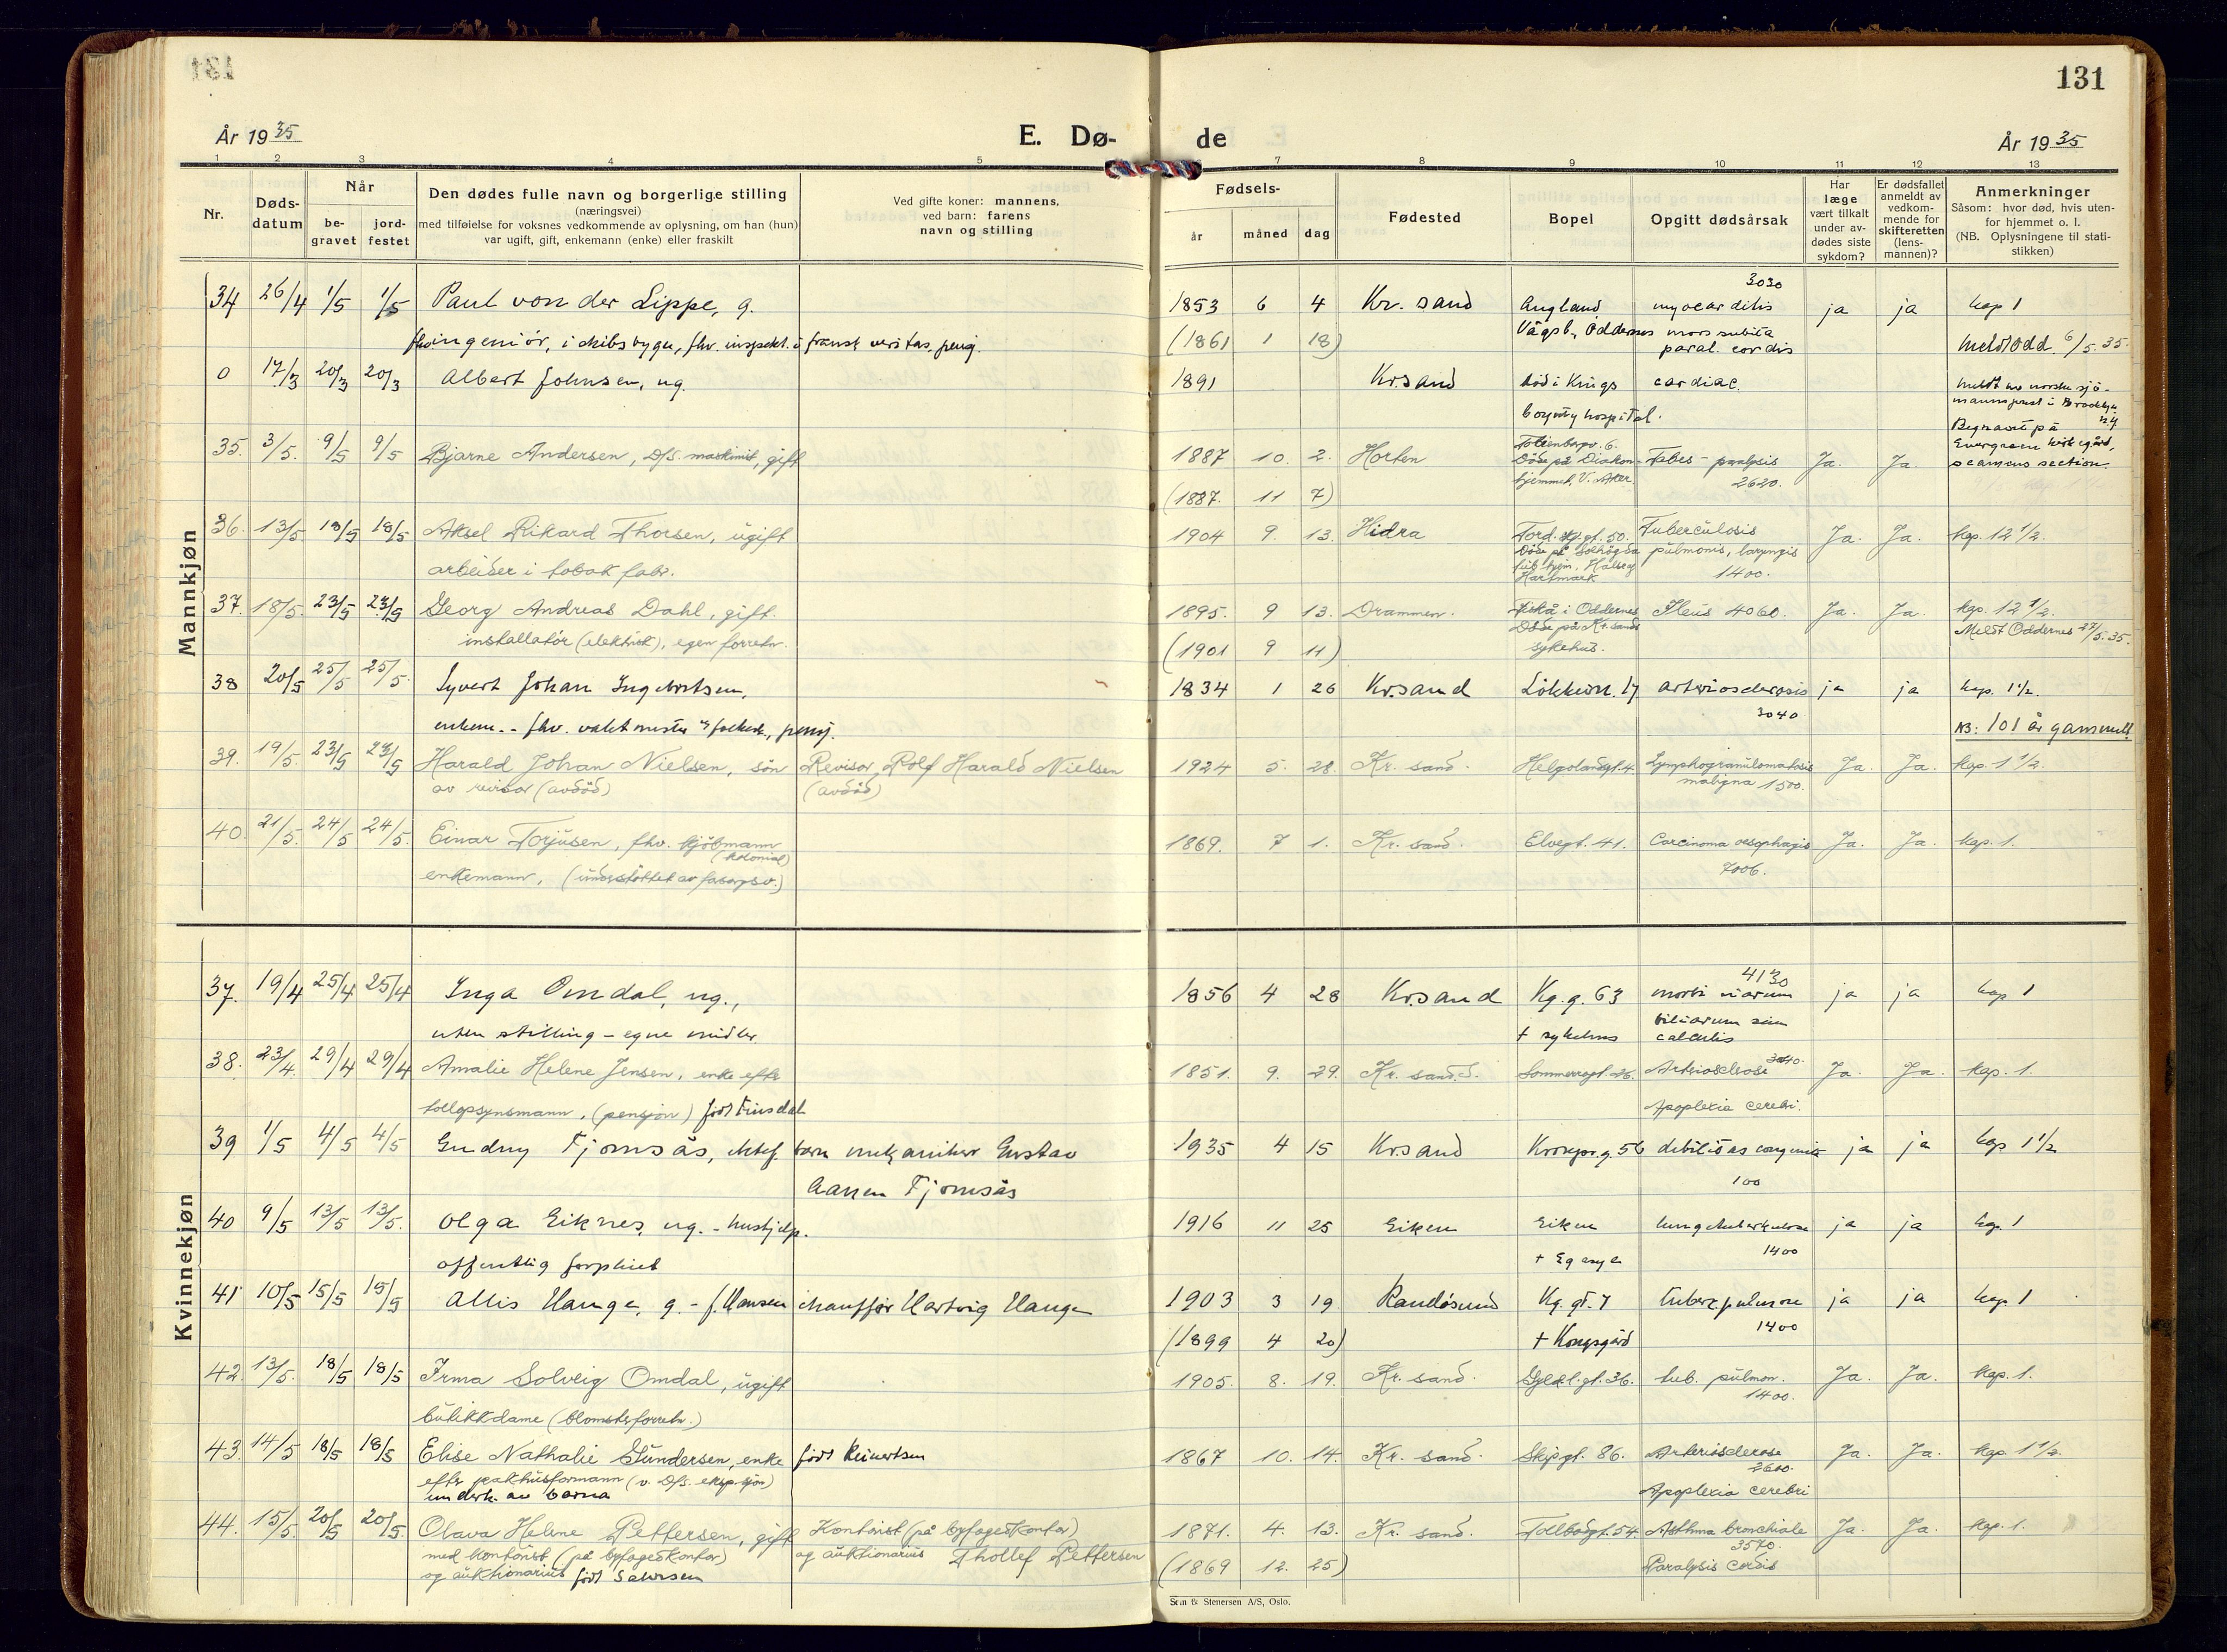 131
År 1935
E. Dø-
de
År 1935
1 2 3 4 5 7 8 9 10 11 12 13
Nr.
Døds-
datum
Når
be-
gravet
jord-
festet
Den dødes fulle navn og borgerlige stilling
(næringsvei)
med tilføielse for voksnes vedkommende av oplysning, om han (hun)
var ugift, gift, enkemann (enke) eller fraskilt
Ved gifte koner: mannens,
ved barn: farens
navn og stilling
Fødsels-
år måned dag
Fødested
Bopel
Opgitt dødsårsak
Har
læge
vært tilkalt
under av-
dødes siste
sykdom?
Er dødsfallet
anmeldt av
vedkom-
mende for
skifteretten
(lens-
mannen)?
Anmerkninger
Såsom: hvor død, hvis uten-
for hjemmet o. l.
(NB. Oplysningene til stati-
stikken)
Mannkjøn
3030
34 26/4 1/5 1/5 Paul von der Lippe, g. 1853 6 4 Kr. sand Augland myocarditis ja ja kap 1
fhv. ingeniør, i skibsbygn, fhv. inspekt. i fransk veritas, pensj. (1861 1 18) Vågsb., Oddernes mors subita Meldt Odd. 6/5.35.
paral. cordis
0 17/3 20/3 20/3 Albert Johnsen, ug. 1891 Kr.sand død i Kings cardiac. meldt av norske sjø-
County hospital. mannsprest i Brooklyn
Begravet på
35. 3/5. 9/5 9/5 Bjarne Andersen, D/S. maskinist, gift 1887 10. 2. Horten 6. Tabes - paralysis Ja. Ja. Evergreen kirkegård,
Døde på Diakon- seamens section.
hjemmet, V. Aker 2620.
(1887. 11 7)
36. 13/5 18/5 18/5 Aksel Rikard Thorsen, ugift 1904 9. 13. Hidra Tord. gt. 50. Tuberculosis Ja. Ja. kap. 12 1/2.
arbeider i tobak fabr. Døde på Solhøgda pulmonis, laryngis
Hartmark 1400.
37. 18/5. 23/5 23/5 Georg Andreas Dahl, gift. 1895. 9 13. Drammen. Fiskå i Oddernes Ileus 4060. Ja. Ja. kap. 12 1/2.
installatør (elektrisk), egen forretn. Døde på Kr.sands Meldt Oddernes 27/5.35.
(1901 9 11) sykehus.
38 20/5 25/5 25/5. Syvert Johan Ingebretsen, 1834 1 26 Kr.sand Løkkeson. 17 arteriosclerosis ja ja kap. 1 1/2.
enkem. - fhv. vaktmester v/ folkesk., pensj. 3040 NB: 101 år gammel!
39. 19/5. 23/5 23/5 Harald Johan Nielsen, søn Revisor, Rolf Harald Nielsen 1924 5. 28. Kr. sand. Helgolandsgt. 4. Lymphogranulomatosis Ja. Ja. kap. 1 1/2.
av revisor (avdød) (avdød) maligna 1500.
40. 21/5. 24/5 24/5. Einar Torjusen, fhv. kjøbmann 1869. 7 1. Kr. sand. Elvegt. 41. Carcinoma oesophagis Ja. Ja. kap. 1.
(kolonial)
enkemann, (understøttet av forsorgsv.) 7006.
Kvinnekjøn
4130
37. 19/4 25/4 25/4 Inga Omdal, ug., 1856 4 28 Kr.sand Kg. g. 63 morbi viarum ja ja kap 1
uten stilling - egne midler + sykehus biliarum sine
calculis
38. 23/4. 29/4 29/4 Amalie Helene Jensen, enke efter 1851. 9. 29. Kr. sand. S. Sommerrogt. 26. Arteriosclerose 3040. Ja. Ja. kap. 1.
tollopsynsmann, (pensjon) født Finsdal Apoplexia cerebri.
39 1/5 4/5 4/5 Gudny Fjomsås, ektef. barn mekaniker Gustav 1935 4 15 Kr.sand Kronpr.g. 56 debilitas congenita ja ja kap 1 1/2
Aanen Fjomsås 100
40 9/5 13/5 13/5. Olga Eiknes, ug. - hushjelp. 1916 11 25 Eiken Eiken lungetuberkulose ja ja kap. 1
offentlig forpleiet + Eg asyl 1400
41 10/5 15/5 15/5 Allis Hauge, g. - f. Hansen chauffør Hartvig Hauge 1903 3 19 Randøsund Kg. gt. 7 Tuberk. pulmon ja ja kap 1
(1899 4 20) + Kongsgård 1400
42. 13/5. 18/5 18/5 Irma Solveig Omdal, ugift 1905. 8. 19. Kr. sand. Gyldl. gt. 36. tub. pulmon. Ja. Ja. kap. 1.
butikkdame (blomsterforretn.) 1400.
43. 14/5 18/5 18/5 Elise Nathalie Gundersen, enke født Reinertsen 1867 10. 14. Kr. sand. Skipgt. 86. Arteriosclerose Ja. Ja. kap. 1 1/2.
efter pakhusformann (v. D/S. eksp.sjon) 2600.
underh. av barna Apoplexia cerebri
44. 15/5. 20/5 20/5. Olava Helene Pettersen, gift Kontorist (på byfogedkontor) 1871. 4. 13. Kr. sand. Tollbodgt. 54. Asthma bronchiale Ja. Ja. kap. 1.
med kontorist (på byfogedkontor) og auktionarius Thollef Pettersen 3570.
og auktionarius født Salvesen (1869 12. 25) Paralysis cordis
Sem & Stenersen A/S, Oslo.